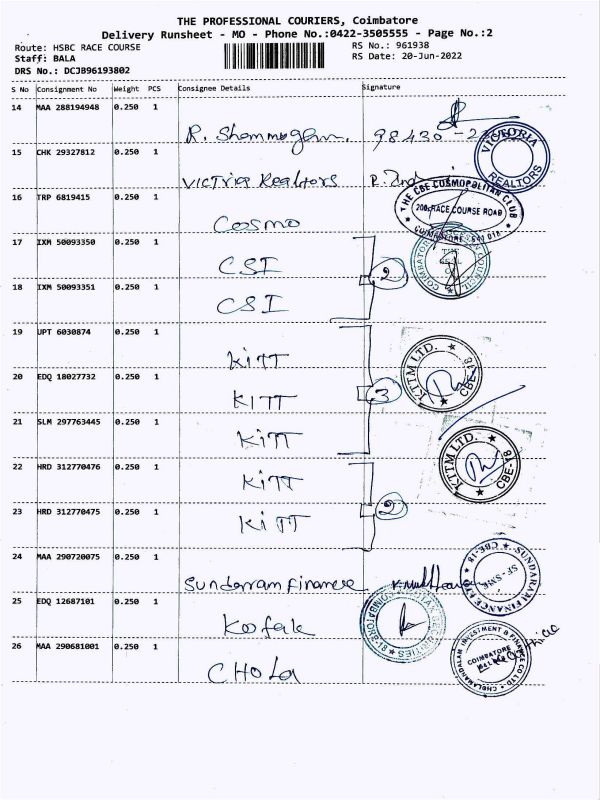 THE PROFESSIONAL COURIERS, Coimbatore
Delivery Runsheet - MO - Phone No.:0422-3505555 - Page No.:2
Route: HSBC RACE COURSE
RS No.: 961938
Staff: BALA
RS Date: 20-Jun-2022
DRS No.: DCJB96193802
S No Consignment No Weight PCS Consignee Details Signature
14 MAA 288194948 0.250 1
R. Shanmugam. 98430
15 CHK 29327812 0.250 1
VICTORIA REALTORS
VICTRIA Realtors
16 TRP 6819415 0.250 1
THE CBE COSMOPOLITAN CLUB
RACE COURSE ROAD
COSMO
17 IXM 50093350 0.250 1
CSI
2
18 IXM 50093351 0.250 1
CSI
19 UPT 6030874 0.250 1
KiTT
KTTM LTD. CBE-18
20 EDQ 18027732 0.250 1
KITT
3
21 SLM 297763445 0.250 1
KiTT
KTTM LTD. CBE-18
22 HRD 312770476 0.250 1
KiTT
2
23 HRD 312770475 0.250 1
KiTT
24 MAA 290720075 0.250 1
Sundarram Finanese
SUNDARAM FINANCE LTD CBE-18
25 EDQ 12687101 0.250 1
Kotak
26 MAA 290681001 0.250 1
CHOLA
CHOLAMANDALAM INVESTMENT & FINANCE CO LTD
COIMBATORE